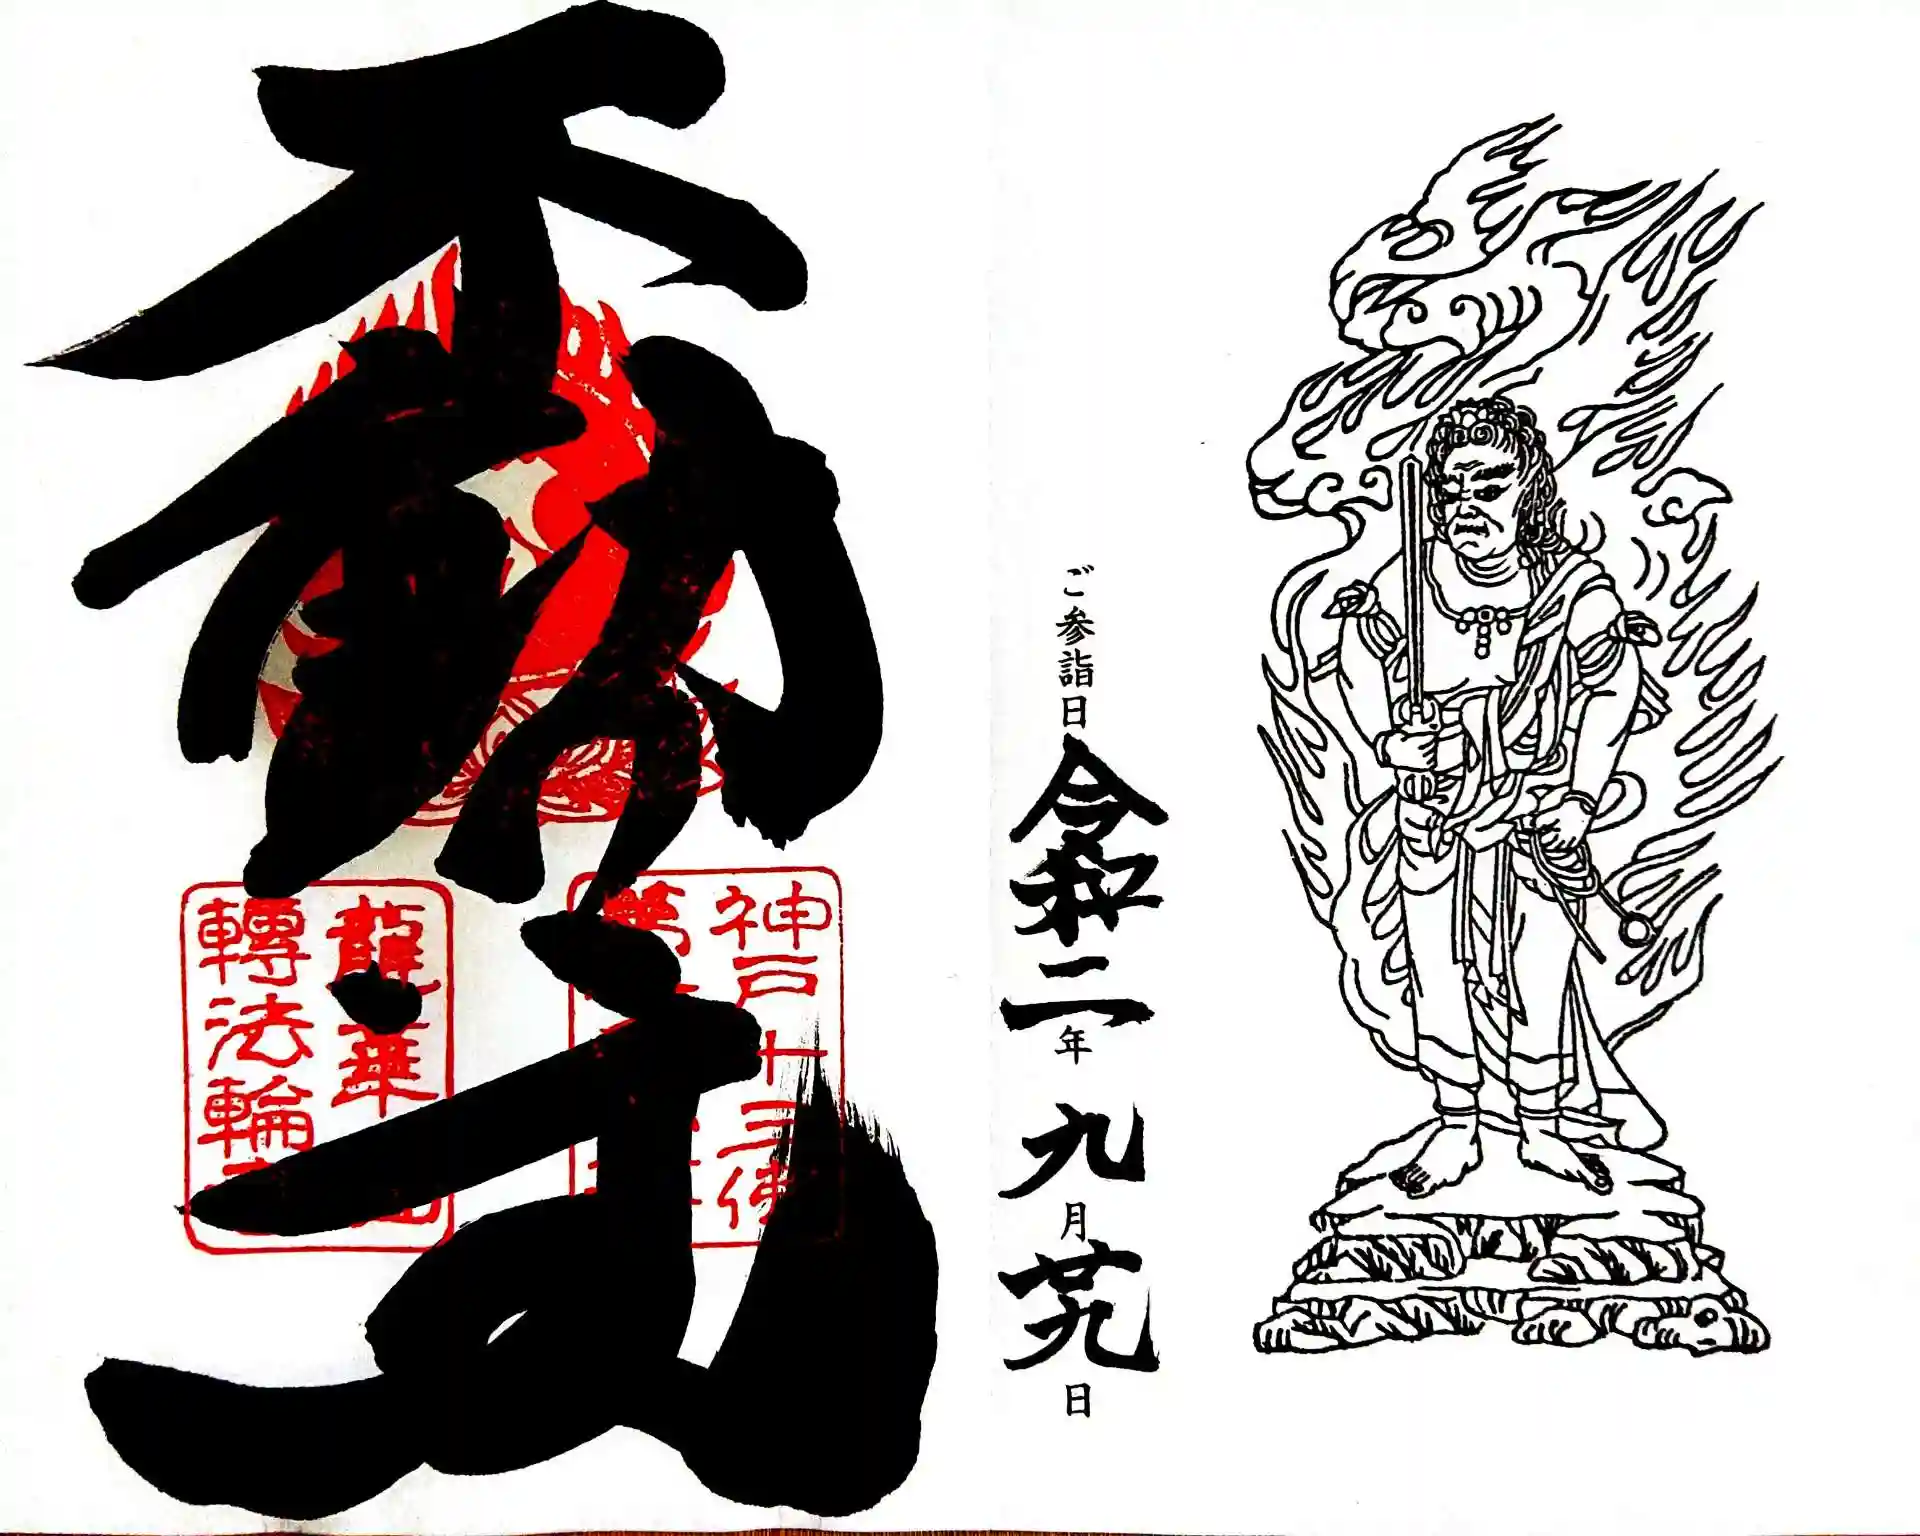 ご参詣日 令和二年 九月廿九日
不動
神戸十三佛
第
龍華
轉法輪